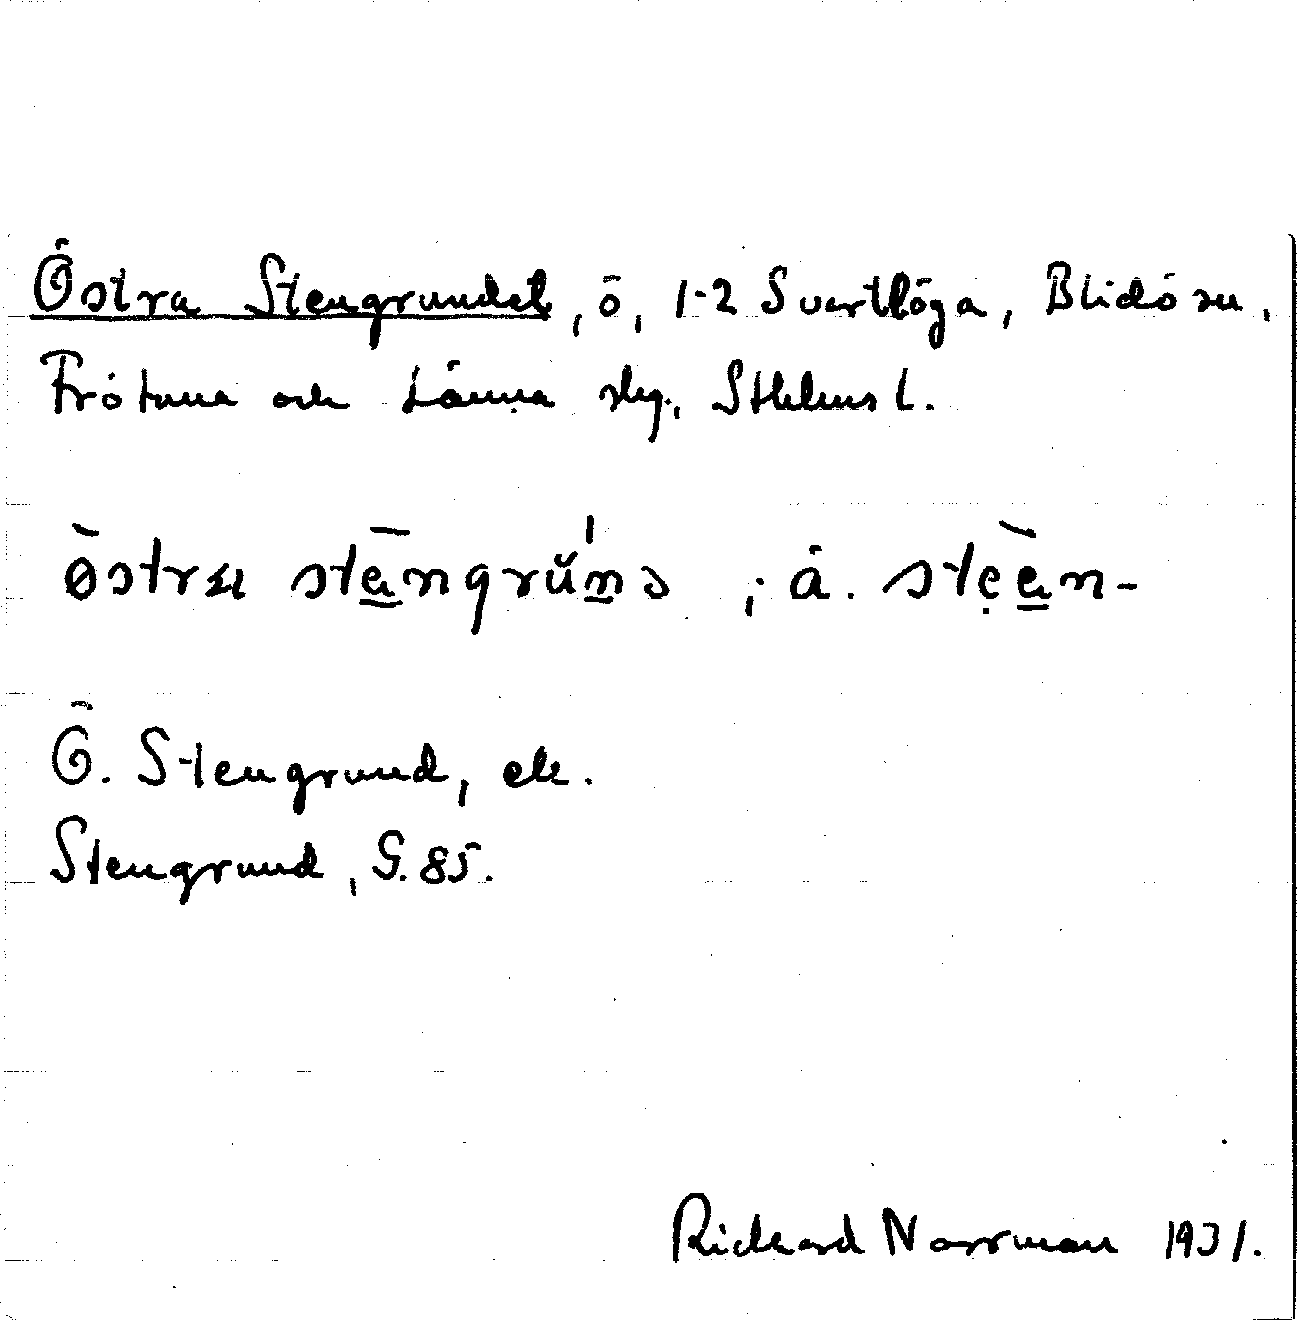 Östra Stengrundet, ö, 1-2 Svartlöga, Blidö sn,
Frötuna och Länna skg, Sthlms l.
östra stēngrŭn̲ə ; ä. stẹēn-
Ö. Stengrund, ek.
Stengrund, G. 85.
Richard Norrman 1931.